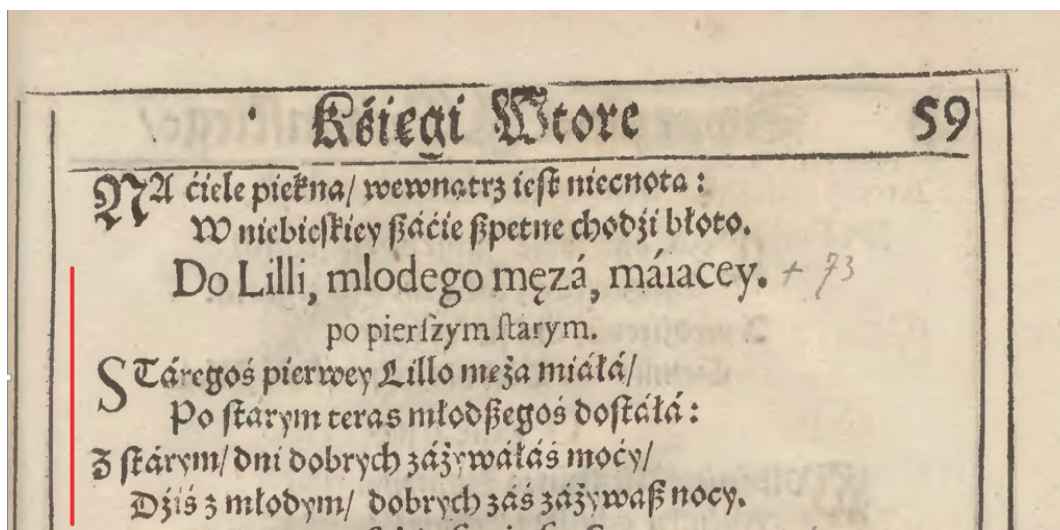 Kśięgi Wtore 59
NA ćiele piękna/ wewnątrz iest niecnota :
W niebieskiey száćie szpetne chodźi błoto.
Do Lilli, mlodego męzá, máiacey. + 73
po pierſzym ſtarym.
STáregoś pierwey Lillo mężá miáłá/
Po stárym teras młodszegoś dostáłá :
Z stárym/ dni dobrych záżywałáś mocy/
Dźiś z młodym/ dobrych záś záżywasz nocy.